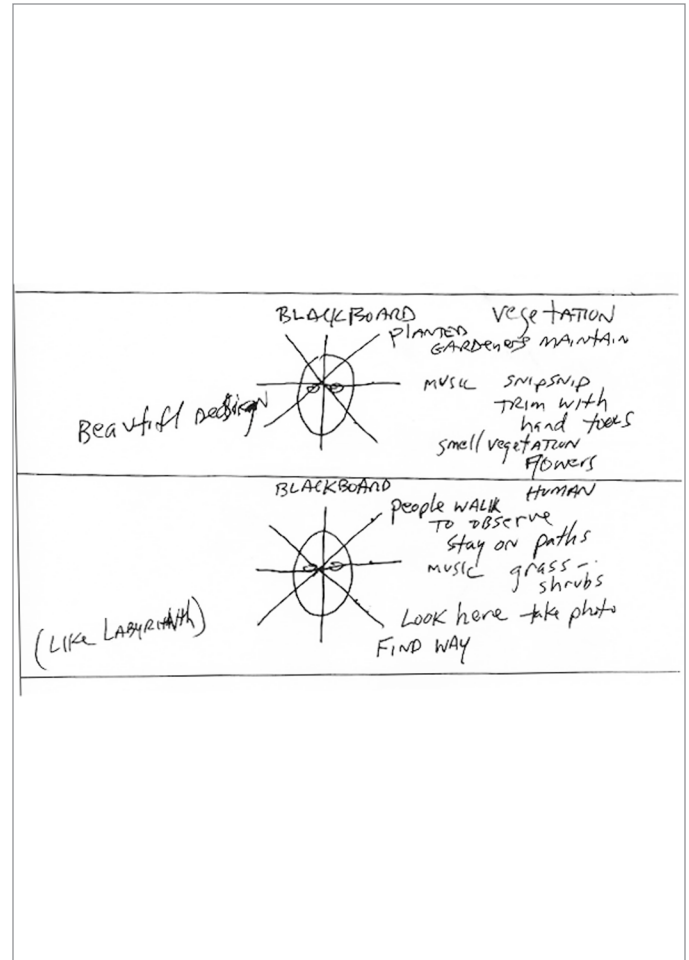 BLACKBOARD
VegeTATION
PLANTED
GARDENERS MAINTAIN
MUSIC SNIPSNIP
TRIM WITH
hand tools
smell vegeTATION
Flowers
Beautifl Design
BLACKBOARD
HUMAN
people WALK
TO OBSERVE
stay on paths
MUSIC grass -
shrubs
Look here take photo
FIND WAY
(LIKE LABYRINth)